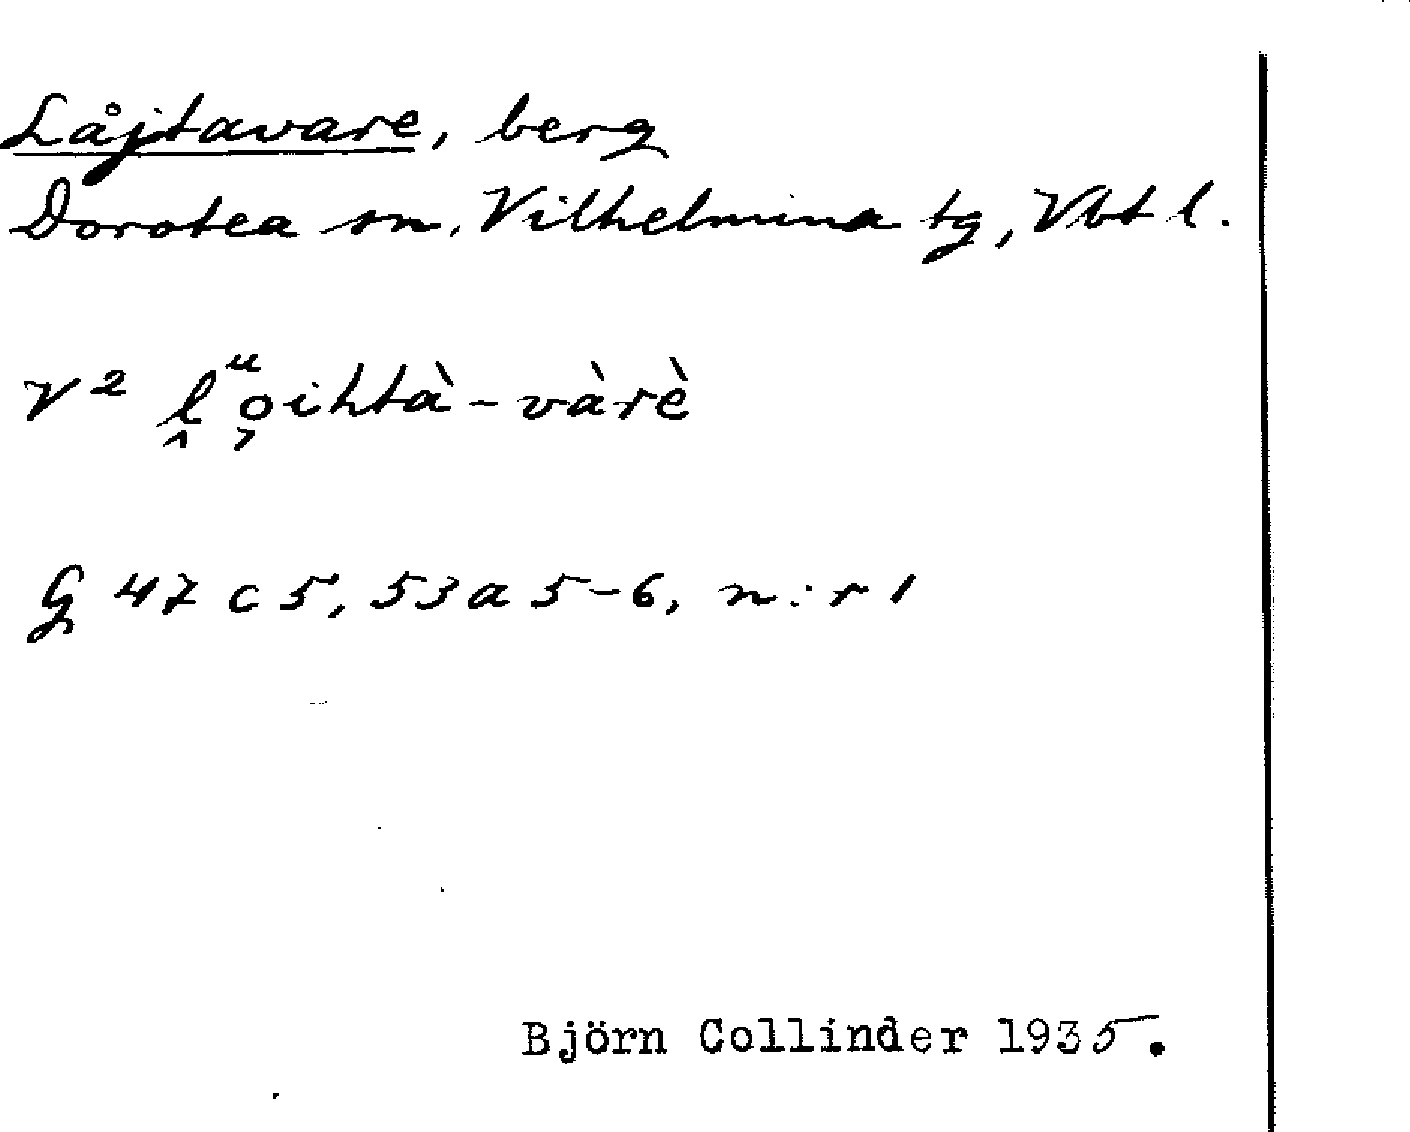 Låjtavare, berg
Dorotea sn, Vilhelmina tg, Vbt l.
V² ḽᵘo̹ihtà-vàrè
G 47 c 5, 53 a 5-6, n:r 1
Björn Collinder 1935.